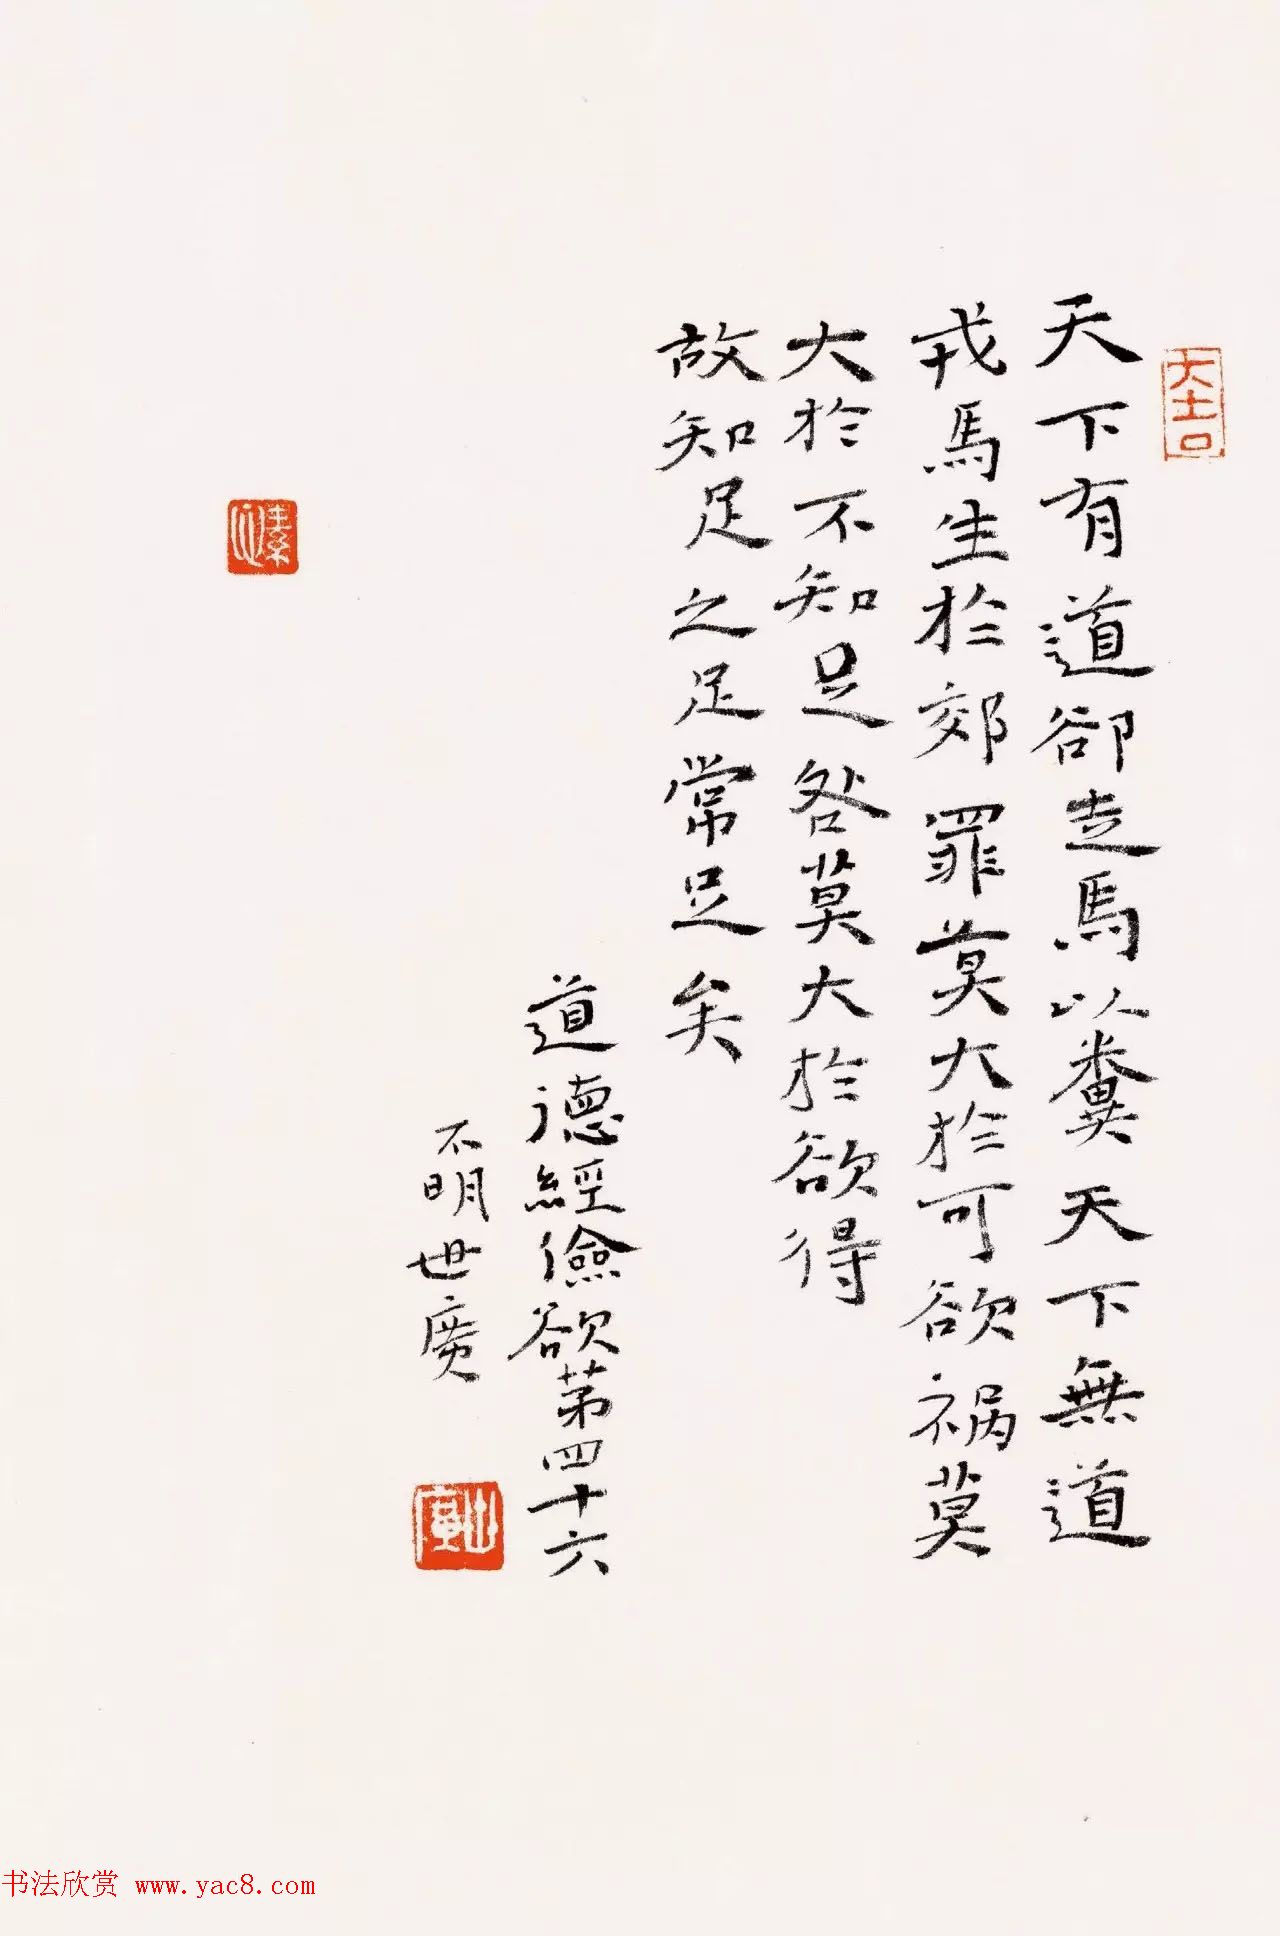 天下有道卻走馬以糞天下無道
戎馬生於郊罪莫大於可欲禍莫
大於不知足咎莫大於欲得
故知足之足常足矣
道德經儉欲第四十六
不明世廣
大吉
世廣
书法欣赏 www.yac8.com